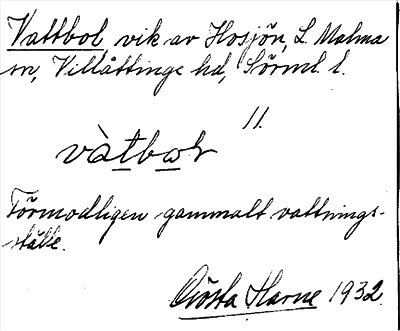 Vattbol, vik av Hosjön, L. Malma
sn, Villåttinge hd, Sörml. l.
11.
vàtbol
Förmodligen gammalt vattnings-
ställe.
Gösta Harne 1932.